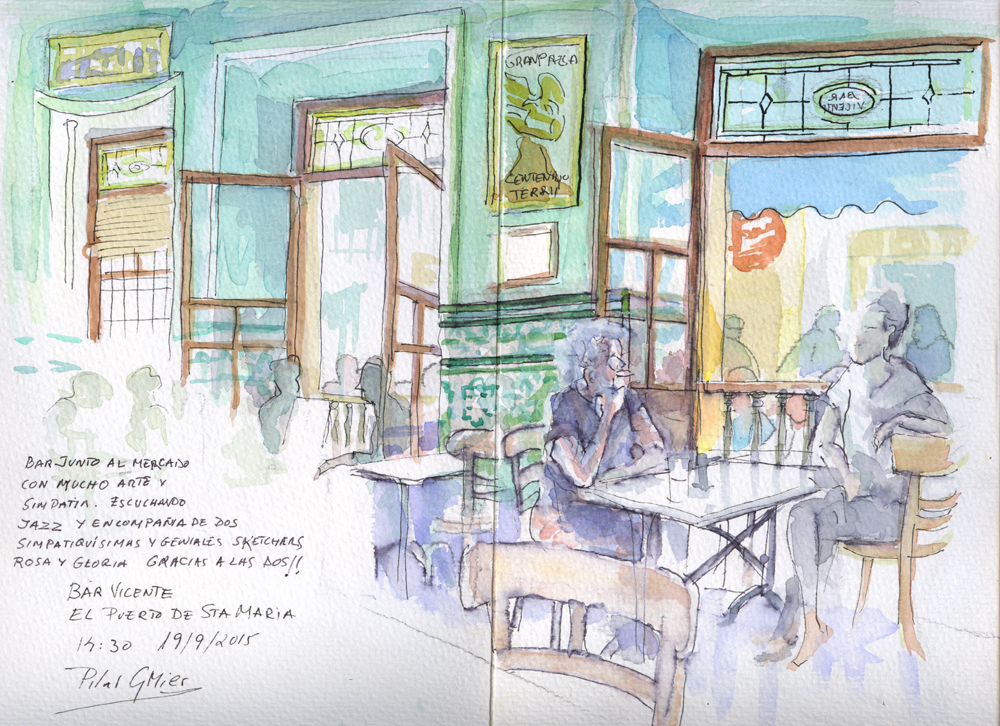 GRANPAZGA
CENTENARIO
TERRY
BAR
VICENTE
BAR JUNTO AL MERCADO
CON MUCHO ARTE Y
SIMPATIA. ESCUCHANDO
JAZZ Y EN COMPAÑIA DE DOS
SIMPATIQUÍSIMAS Y GENIALES SKETCHERS
ROSA Y GLORIA GRACIAS A LAS DOS!!
BAR VICENTE
EL PUERTO DE STA MARIA
14:30 19/9/2015
Pilar GMier